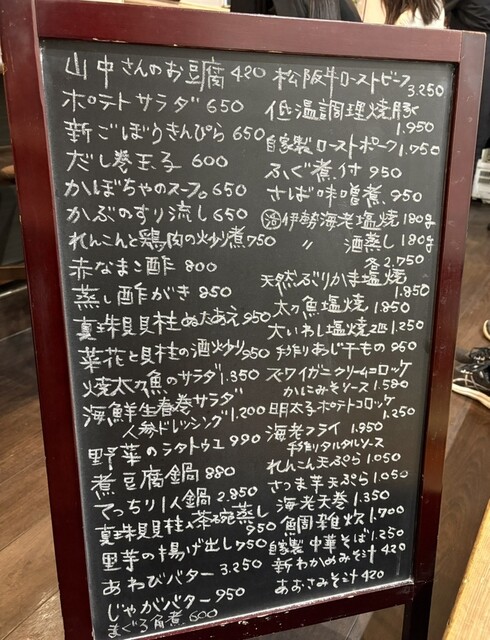 山中さんのお豆腐 420
ポテトサラダ 650
新ごぼうきんぴら 650
だし巻玉子 600
かぼちゃのスープ 650
かぶのすり流し 650
れんこんと鶏肉の炒り煮 750
赤なまこ酢 800
蒸し酢がき 850
真珠貝貝柱ぬたあえ 950
菜花と貝柱の酒炒り 950
焼太刀魚のサラダ 1.350
海鮮生春巻サラダ
人参ドレッシング 1.200
野菜のラタトゥユ 990
煮豆腐鍋 880
てっちり1人鍋 2.850
真珠貝貝柱入茶碗蒸し
950
里芋の揚げ出し 750
あわびバター 3.250
じゃがバター 950
まぐろ角煮 600
松阪牛ローストビーフ
3.250
低温調理焼豚
1.950
自家製ローストポーク 1.750
ふぐ煮付 950
さば味噌煮 950
活伊勢海老塩焼 180g
〃 酒蒸し 180g
各 2.750
天然ぶりかま塩焼
1.850
太刀魚塩焼 1.850
大いわし塩焼2匹 1.250
手作りあじ干もの 950
ズワイガニクリームコロッケ
かにみそソース 1.580
明太子ポテトコロッケ
1.250
海老フライ 1.950
手作りタルタルソース
れんこん天ぷら 1.050
さつま芋天ぷら 1.050
海老天巻 1.350
鯛雑炊 1.700
自家製中華そば 1.250
新わかめみそ汁 420
あおさみそ汁 420